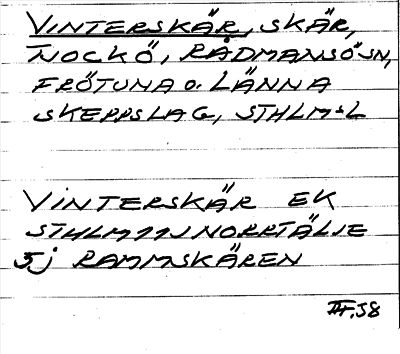 VINTERSKÄR, SKÄR,
NOCKÖ, RÅDMANSÖ SN,
FRÖTUNA O. LÄNNA
SKEPPSLAG, STHLMSL
VINTERSKÄR EK
STHLM 11J NORRTÄLJE
5j RAMMSKÄREN